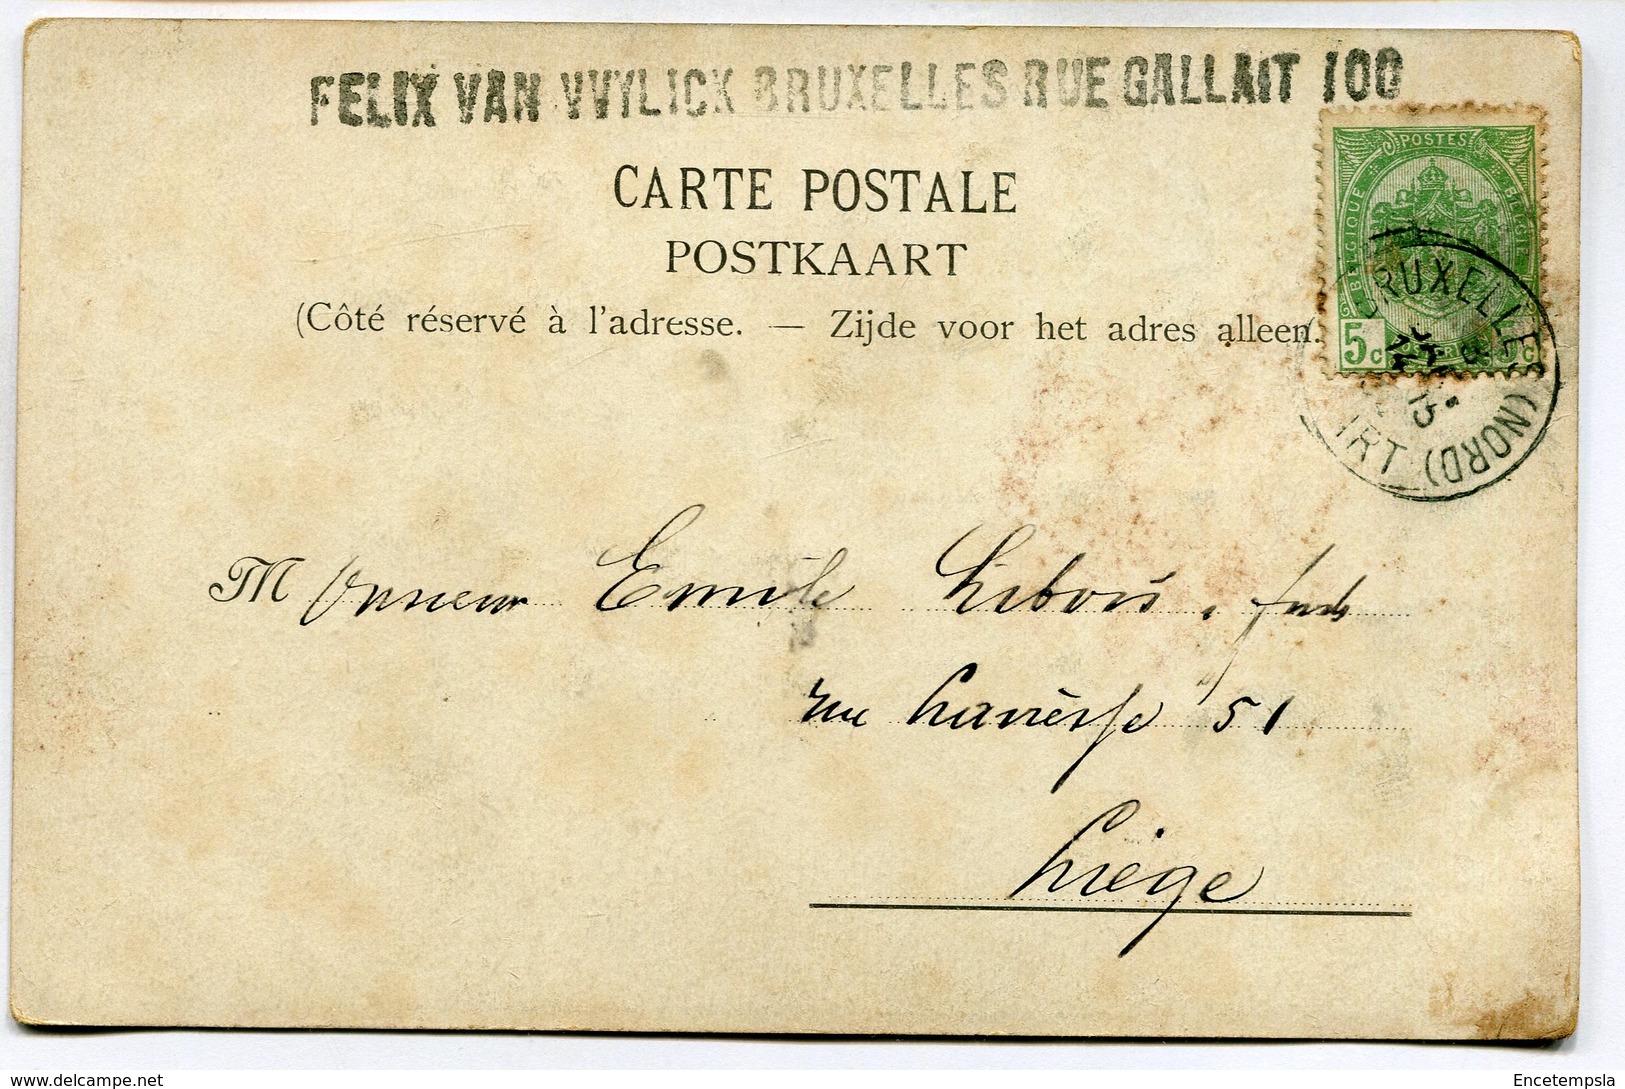 FELIX VAN WYLICK BRUXELLES RUE GALLAIT 100
CARTE POSTALE
POSTKAART
(Côté réservé à l'adresse. — Zijde voor het adres alleen.
POSTES
BELGIQUE
BELGIË
5c
BRUXELLES (NORD)
(NORD)
Monsieur Emile
51
Liège
delcampe.net
Encetempsla